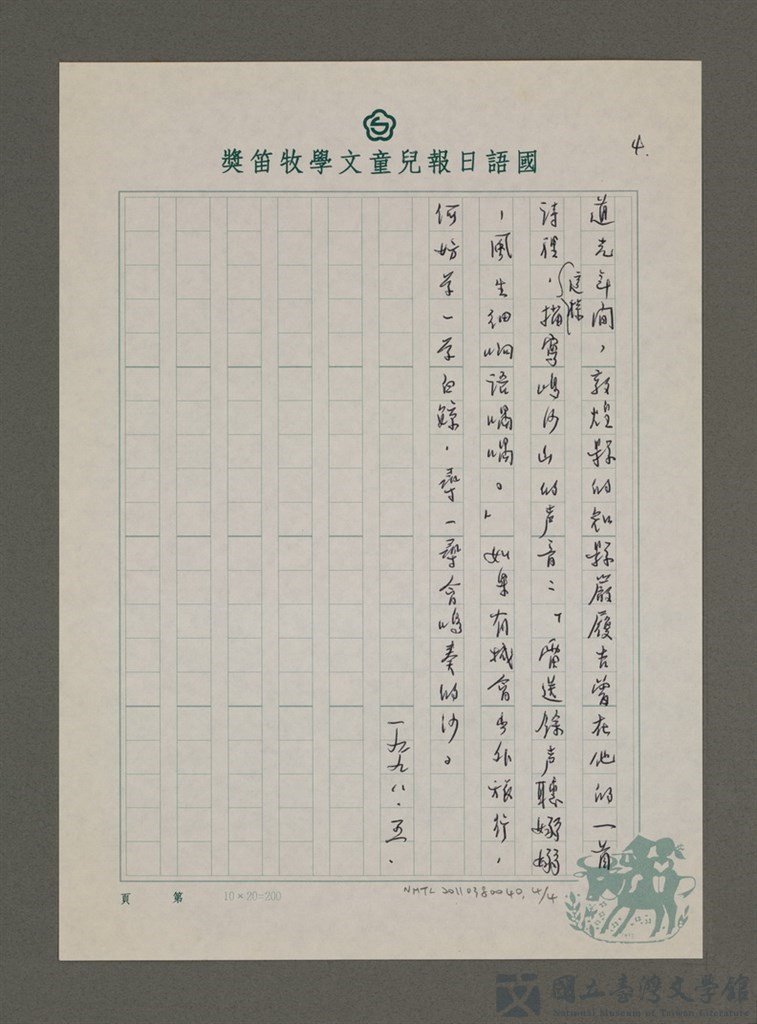 4.
國語日報兒童文學牧笛獎
道光年間，敦煌縣的知縣嚴履吉曾在他的一首
詩裡，這樣描寫鳴沙山的声音：「雷送餘声聽嫋嫋
，風生細响語喁喁。」如果有機會出外旅行，
何妨学一学白鯨，尋一尋會鳴奏的沙。
一九九八.五.
NMTL 20110380040, 4/4
10×20=200
第 頁
國立臺灣文學館
National Museum of Taiwan Literature